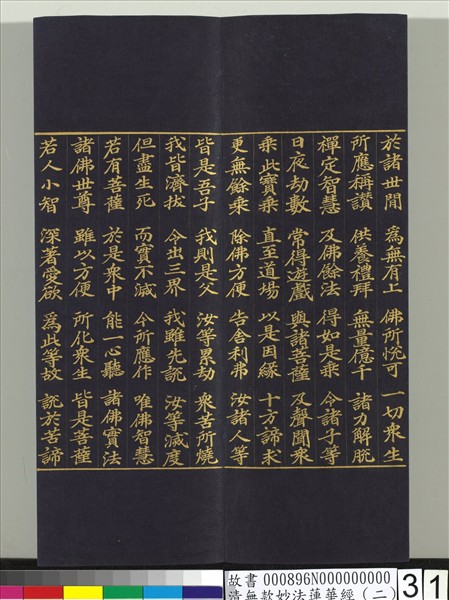 於諸世間　為無有上　佛所悅可　一切眾生
所應稱讚　供養禮拜　無量億千　諸力解脫
禪定智慧　及佛餘法　得如是乘　令諸子等
日夜劫數　常得遊戲　與諸菩薩　及聲聞眾
乘此寶乘　直至道場　以是因緣　十方諦求
更無餘乘　除佛方便　告舍利弗　汝諸人等
皆是吾子　我則是父　汝等累劫　眾苦所燒
我皆濟拔　令出三界　我雖先說　汝等滅度
但盡生死　而實不滅　今所應作　唯佛智慧
若有菩薩　於是眾中　能一心聽　諸佛實法
諸佛世尊　雖以方便　所化眾生　皆是菩薩
若人小智　深著愛欲　為此等故　說於苦諦
故書 000896N000000000
清無款妙法蓮華經（二）
31